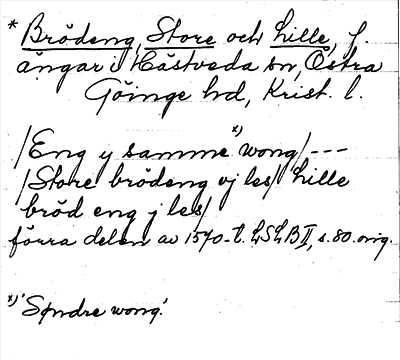 * Brödeng, Store och Lille, f.
ängar i Hästveda sn, Östra
Göinge hd, Krist. l.
/Eng y samme *) wong/ ---
/Store brödeng vj les/ Lille
bröd eng j les/
förra delen av 1570-t. LSLB II, s. 80. orig.
*) 'Søndre wong.'